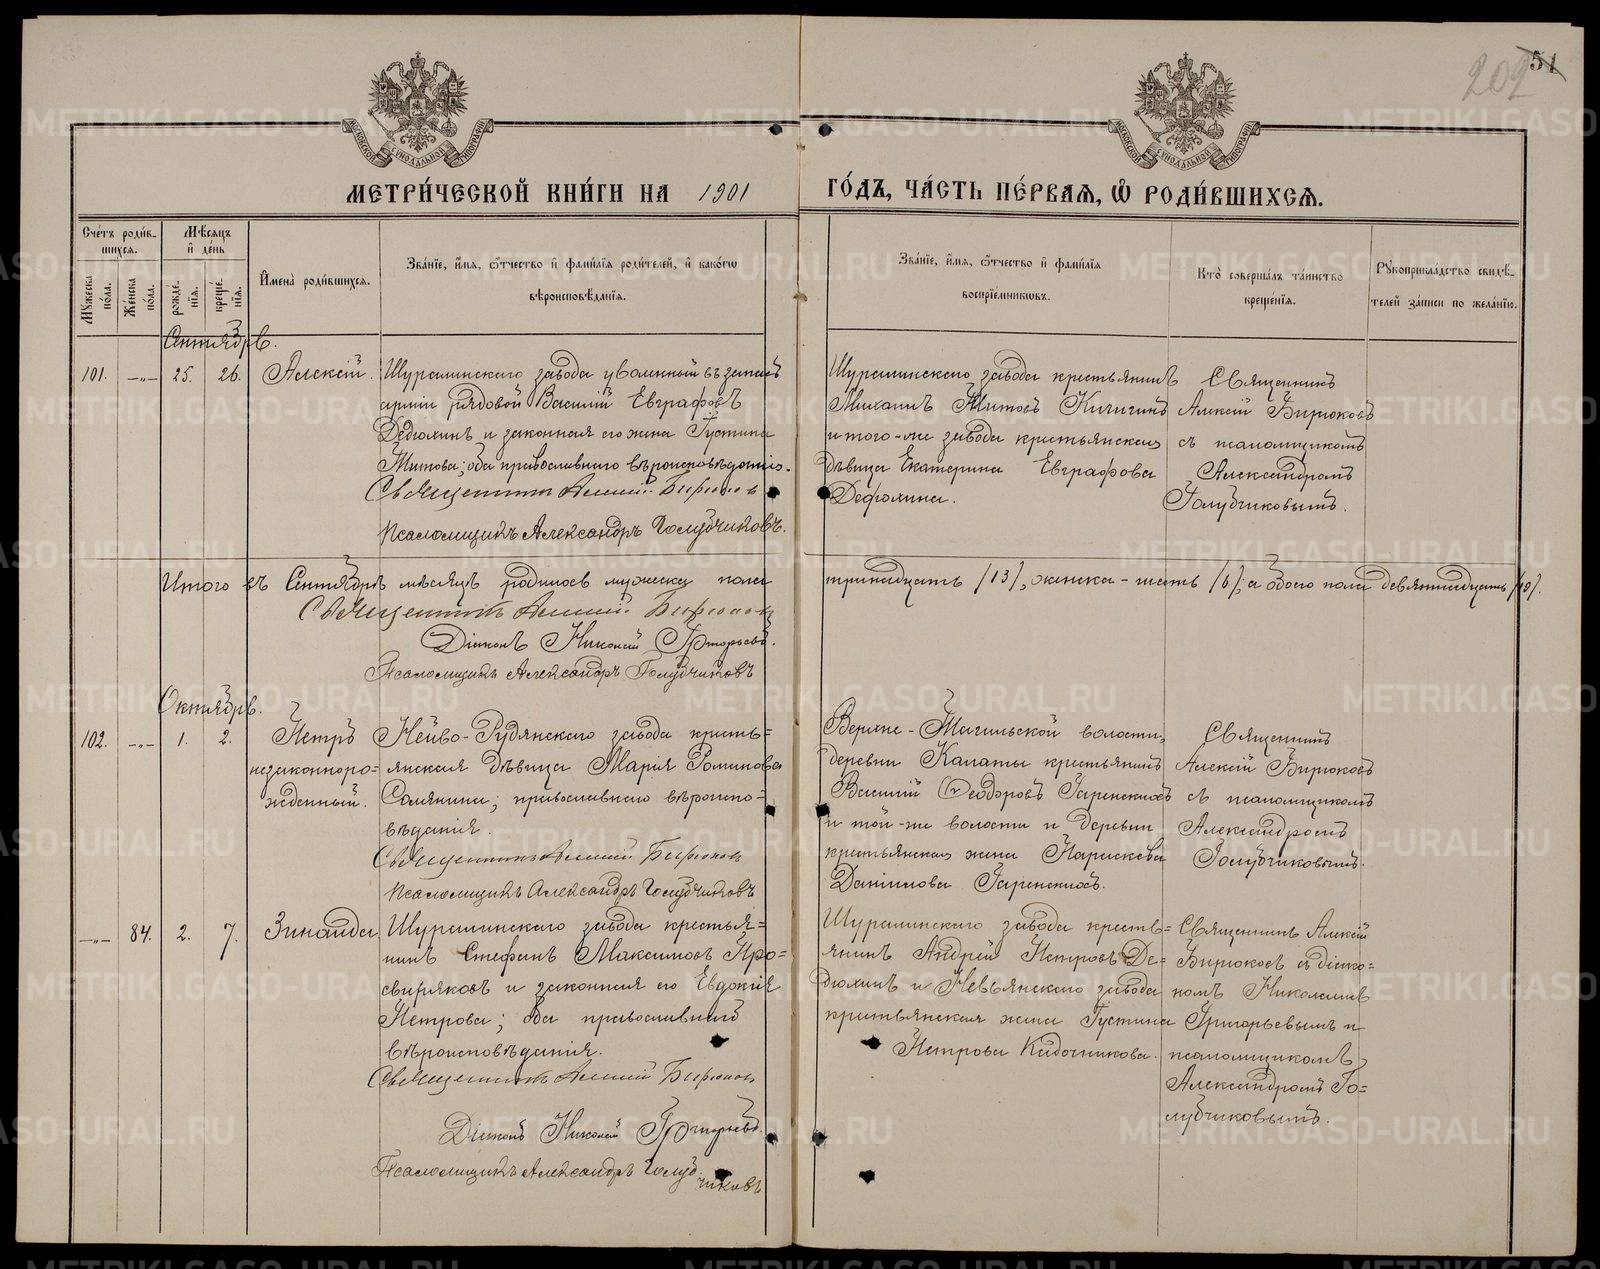 202 51
МОСКОВСКОЙ СѴНОДАЛЬНОЙ ТИПОГРАФІИ
МОСКОВСКОЙ СѴНОДАЛЬНОЙ ТИПОГРАФІИ
МЕТРИ́ЧЕСКОЙ КНИ́ГИ НА 1901
ГО́ДЪ, ЧА́СТЬ ПЕ́РВАЯ, Ѽ РОДИ́ВШИХСЯ.
Сче́тъ роди́в-
шихся.
Мѣсяцъ
и҆ де́нь
Мꙋжеска по́ла.
Же́нска по́ла.
рожде́-
нїя.
креще́-
нїя.
И҆мена̀ роди́вшихся.
Зва́нїе, и҆́мя, ѻ҆́тчество и҆ фами́лїя роди́телей, и҆ како́гѡ
вѣроисповѣ́данїя.
Зва́нїе, и҆́мя, ѻ҆́тчество и҆ фами́лїя
воспрїе́мниковъ.
Кто̀ соверша́лъ та́инство
креще́нїя.
Рꙋкоприкла́дство свидѣ́-
телей за́писи по жела́нїю.
Сентябрь.
101. —„— 25. 26. Алексій.
Шуралинскаго завода уволенный въ запасъ
арміи рядовой Василій Евграфовъ
Дедюхинъ и законная его жена Густина
Титова; оба православнаго вѣроисповѣданія.
Священникъ Алексій Бирюковъ
Псаломщикъ Александръ Голубчиковъ.
Шуралинскаго завода крестьянинъ
Михаилъ Титовъ Кичигинъ
и того-же завода крестьянская
дѣвица Екатерина Евграфова
Дедюхина.
Священникъ
Алексій Бирюковъ
съ псаломщикомъ
Александромъ
Голубчиковымъ.
Итого въ Сентябрѣ мѣсяцѣ родилось мужеска пола
тринадцать /13/, женска - шесть /6/, а обоего пола девятнадцать /19/.
Священникъ Алексій Бирюковъ
Діаконъ Николай Григорьевъ.
Псаломщикъ Александръ Голубчиковъ
Октябрь.
102. —„— 1. 2. Петръ
незаконноро=
жденный.
Нейво-Рудянскаго завода кресть=
янская дѣвица Марія Романова
Солякина; православнаго вѣроиспо=
вѣданія.
Священникъ Алексій Бирюковъ
Псаломщикъ Александръ Голубчиковъ
Верхне-Тагильской волости,
деревни Калаты крестьянинъ
Василій Ѳеодоровъ Гаренскихъ
и той-же волости и деревни
крестьянская жена Параскева
Даніилова Гаренскихъ.
Священникъ
Алексій Бирюковъ
съ псаломщикомъ
Александромъ
Голубчиковымъ.
—„— 84. 2. 7. Зинаида
Шуралинскаго завода крестья=
нинъ Стефанъ Максимовъ Про=
свиряковъ и законная его Евдокія
Петрова; оба православнаго
вѣроисповѣданія.
Священникъ Алексій Бирюковъ
Діаконъ Николай Григорьевъ.
Псаломщикъ Александръ Голуб-
чиковъ
Шуралинскаго завода кресть=
янинъ Андрей Петровъ Де=
дюхинъ и Невьянскаго завода
крестьянская жена Густина
Петрова Кадочникова.
Священникъ Алексій
Бирюковъ съ діако=
номъ Николаемъ
Григорьевымъ и
псаломщикомъ
Александромъ Го=
лубчиковымъ.
METRIKI.GASO-URAL.RU